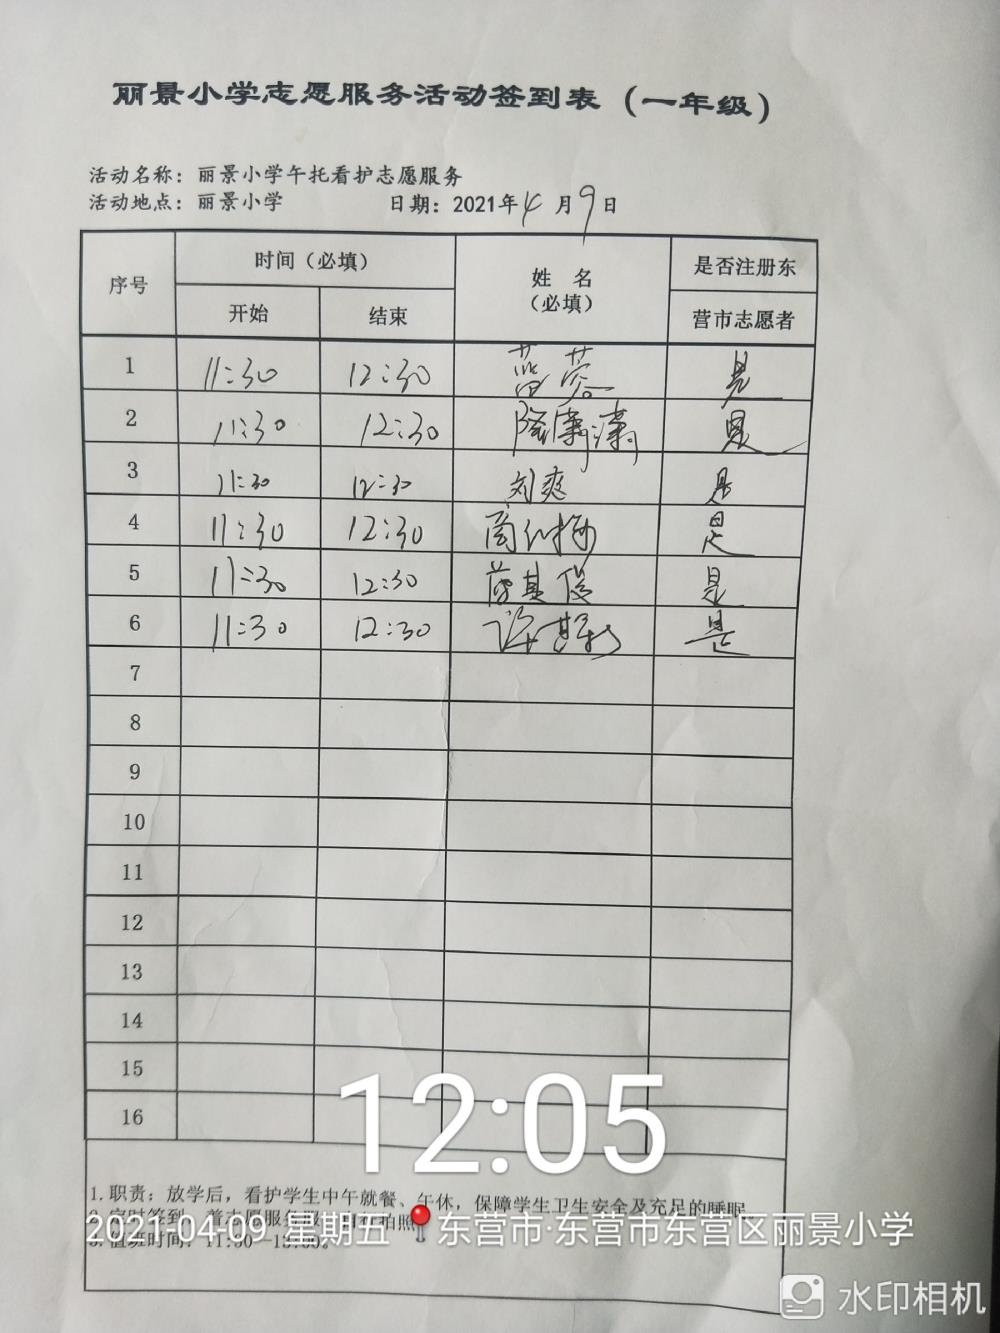 丽景小学志愿服务活动签到表（一年级）
活动名称：丽景小学午托看护志愿服务
活动地点：丽景小学 日期：2021年4月9日
序号 时间（必填） 姓 名（必填） 是否注册东营市志愿者
开始 结束
1 11:30 12:30 蓝蓉 是
2 11:30 12:30 陆潇潇 是
3 11:30 12:30 刘爽 是
4 11:30 12:30 是
5 11:30 12:30 是
6 11:30 12:30 是
7
8
9
10
11
12
13
14
15
16
12:05
1.职责：放学后，看护学生中午就餐、午休，保障学生卫生安全及充足的睡眠。
3.值班时间：11:30—13:00。
2021-04-09 星期五 东营市·东营市东营区丽景小学
水印相机